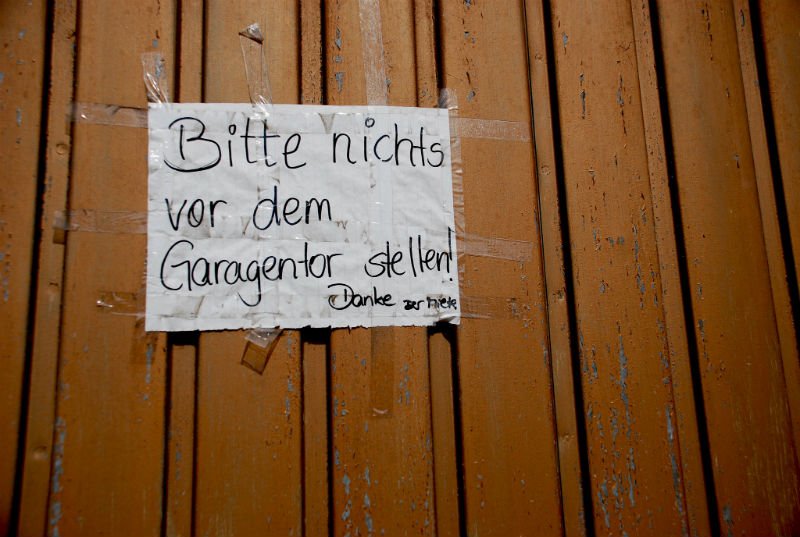 Bitte nichts
vor dem
Garagentor stellen!
Danke